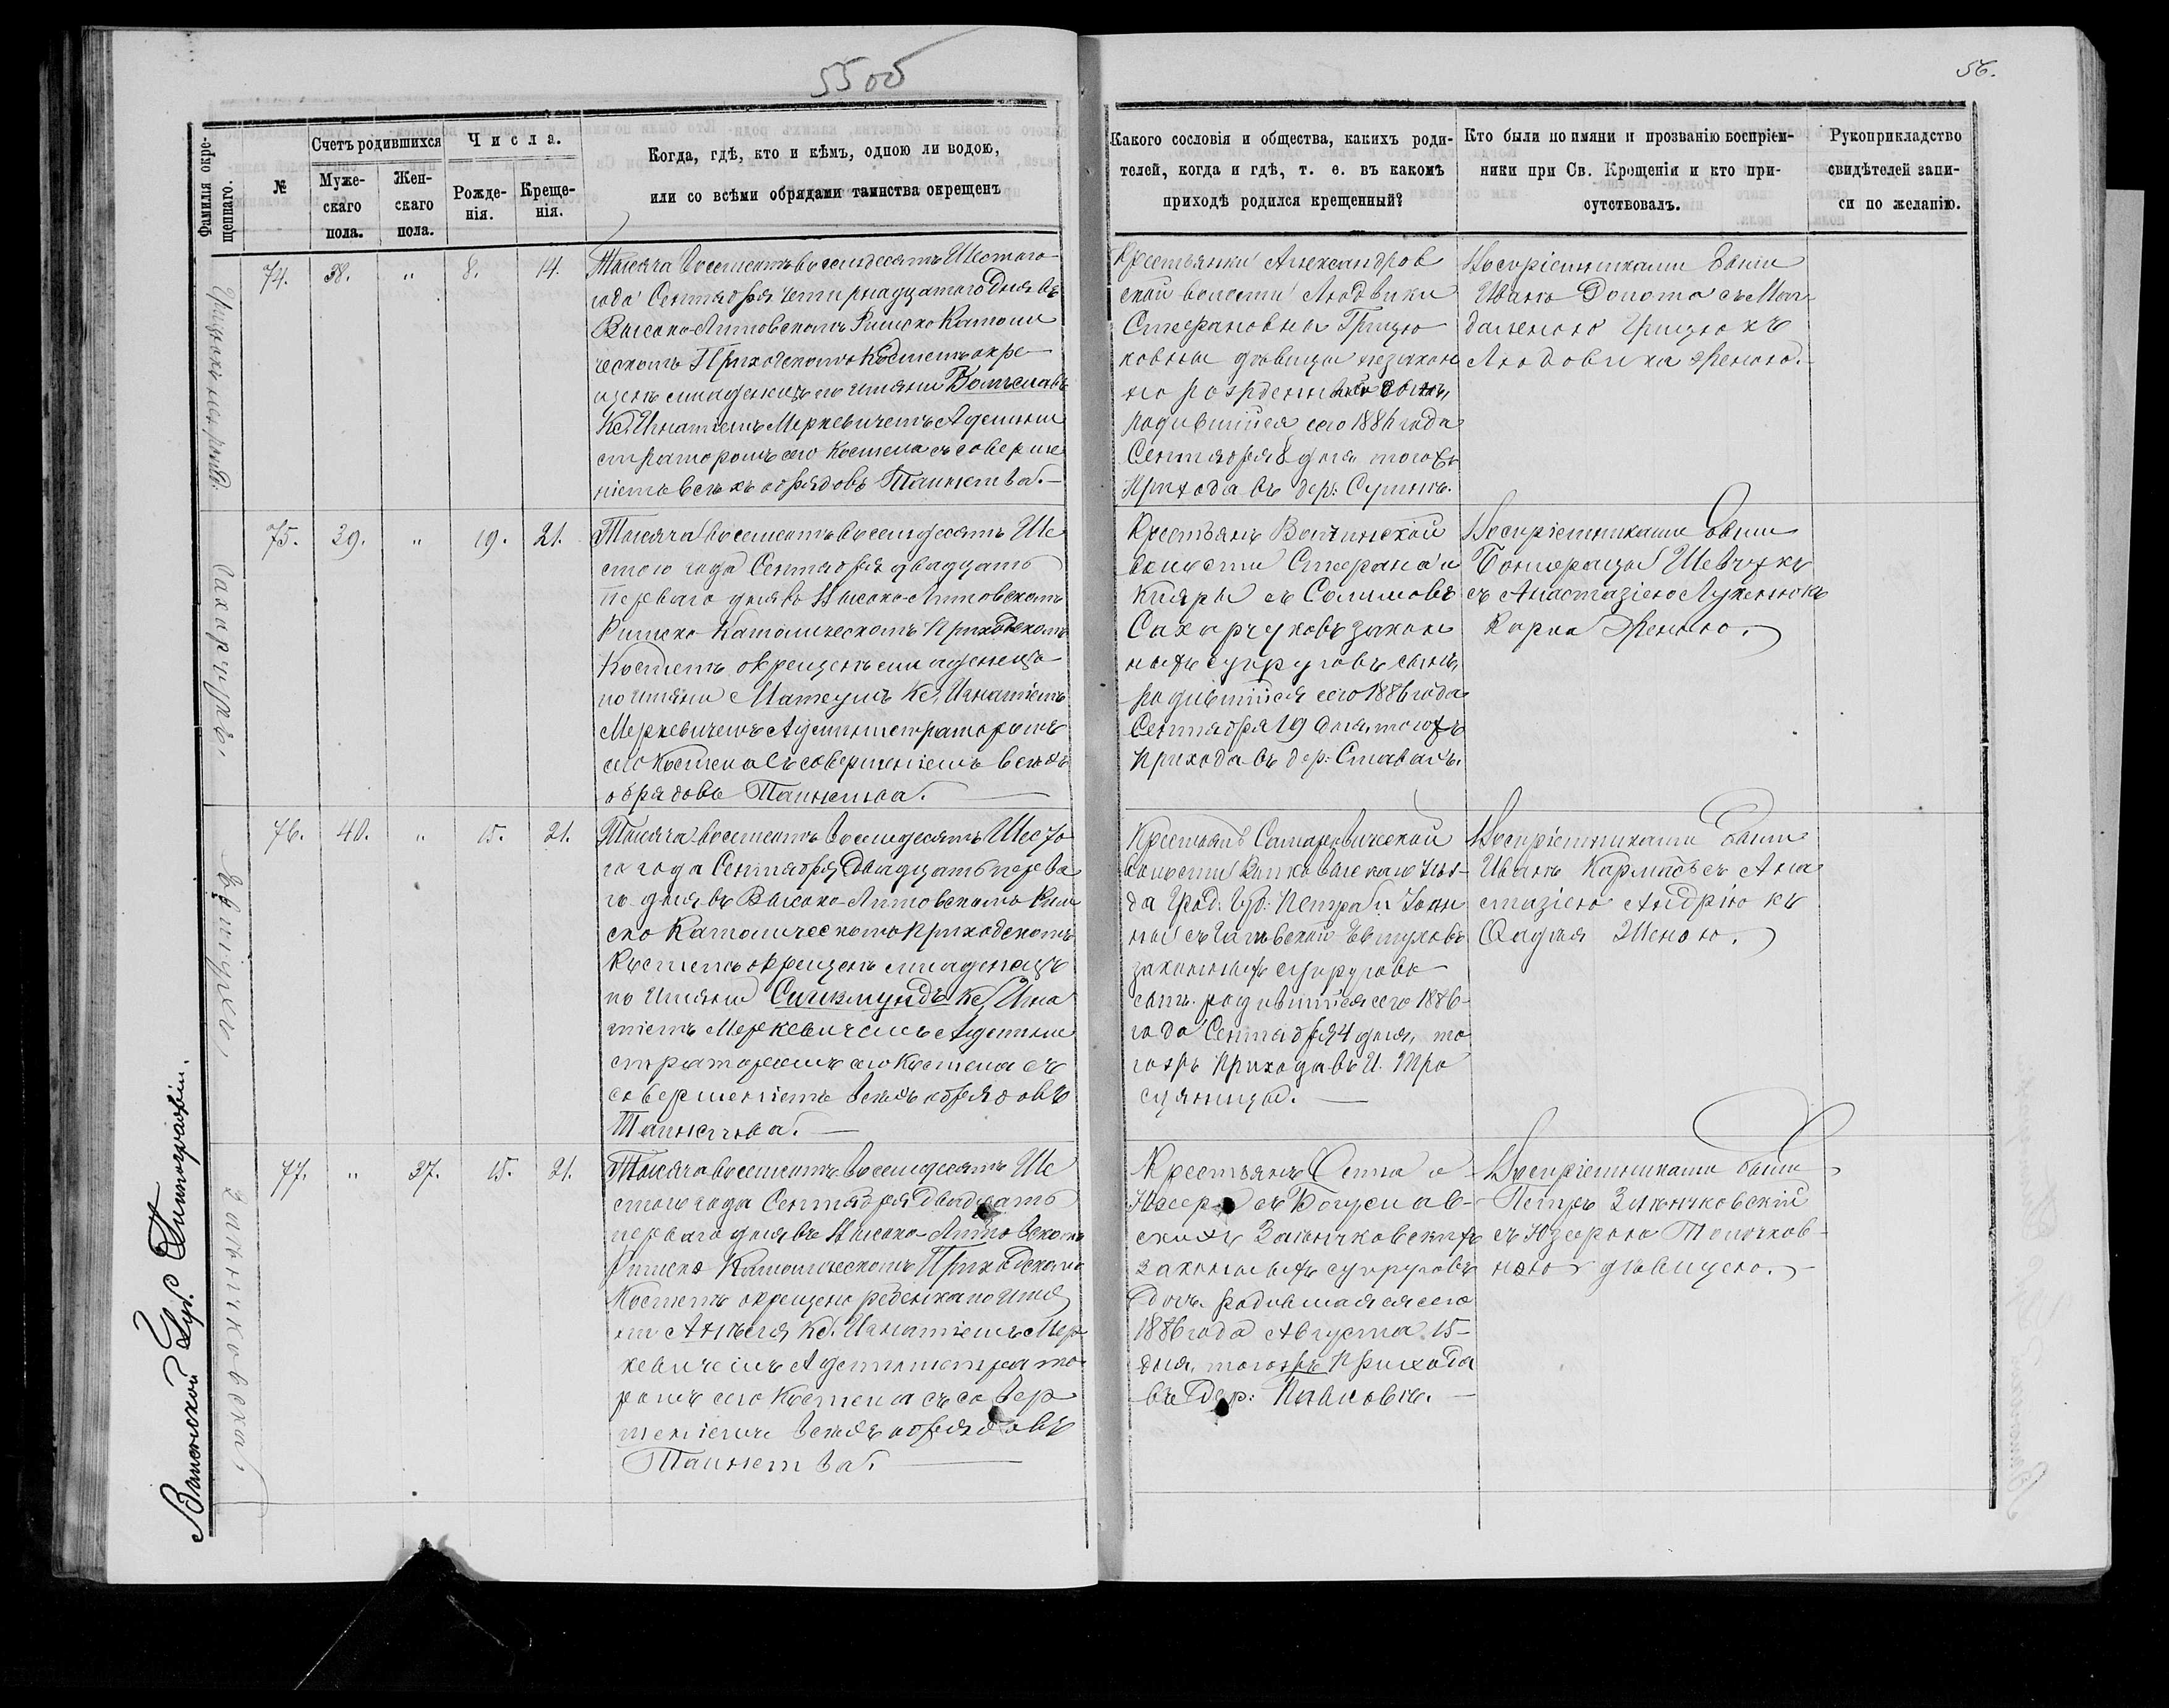 55 об
56.
Фамилія окре-
щеннаго.
№
Счетъ родившихся
Муже-
скаго
пола.
Жен-
скаго
пола.
Числа.
Рожде-
нія.
Креще-
нія.
Когда, гдѣ, кто и кѣмъ, одною ли водою,
или со всѣми обрядами таинства окрещенъ
Какого сословія и общества, какихъ роди-
телей, когда и гдѣ, т. е. въ какомъ
приходѣ родился крещенный?
Кто были по имяни и прозванію воспріем-
ники при Св. Крещеніи и кто при-
сутствовалъ.
Рукоприкладство
свидѣтелей запи-
си по желанію.
74. 38. " 8. 14.
Тысяча восемсотъ восемдесятъ Шестого
года Сентября четырнадцатого Дня въ
Высоко-Литовскомъ Римско Католи
ческомъ Приходскомъ Костелѣ окре-
щенъ младенецъ по имяни Болеславъ
Кс. Игнатіемъ Меркевичемъ Админи
страторомъ сего Костела съ соверше
ніемъ всѣхъ обрядовъ Таинства. —
Крестьянки Александров
ской волости Людвики
Стефановны Грицю
ковны дѣвицы незакон
но рожденный сынъ,
родившійся сего 1886 года
Сентября 8 дня, того жъ
Прихода въ дер:
Воспріемниками были
Иванъ съ Маг
даленою Грицюкъ
Людовика женою.
75. 39. " 19. 21.
Сахарчукъ.
Тысяча восемсотъ восемдесятъ Ше
стого года Сентября двадцать
перваго дня въ Высоко-Литовскомъ
Римско Католическомъ Приходскомъ
Костелѣ окрещенъ младенецъ
по имяни Матеушъ Кс. Игнатіемъ
Меркевичемъ Администраторомъ
сего Костела съ совершеніемъ всѣхъ
обрядовъ Таинства. —
Крестьянъ Волчинской
волости Стефана и
Кляры съ
Сахарчуковъ закон
ныхъ супруговъ сынъ,
родившійся сего 1886 года
Сентября 19 дня, того жъ
Прихода въ дер: Ставахъ.
Воспріемниками были
Шевчукъ
съ Анастазіею
Карла Женою.
76. 40. " 15. 21.
Тысяча восемсотъ восемдесятъ Шесто
го года Сентября Двадцать перва
го дня въ Высоко-Литовскомъ Рим
ско Католическомъ Приходскомъ
Костелѣ окрещенъ младенецъ
по имяни Сигизмундъ Кс. Игна
тіемъ Меркевичемъ Админи
страторомъ сего Костела съ
совершеніемъ всѣхъ обрядовъ
Таинства. —
Крестьянъ
волости Волковыскаго Уѣз-
да Грод. Губ: Петра и
законныхъ супруговъ
сынъ, родившійся сего 1886
года Сентября 4 дня, то
гожъ Прихода въ
Воспріемниками были
Иванъ съ Ана
стазіею Андріюкъ
Женою.
77. " 37. 15. 21.
Тысяча восемсотъ восемдесятъ Ше
стого года Сентября Двадцать
перваго дня въ Высоко-Литовскомъ
Римско Католическомъ Приходскомъ
Костелѣ окрещено ребенка по имя
ни Анѣля Кс. Игнатіемъ Мер
кевичемъ Администрато
ромъ сего Костела съ совер
шеніемъ всѣхъ обрядовъ
Таинства. —
Крестьянъ и
съ Богуслав-
скихъ
законныхъ супруговъ
дочь, родившаяся сего
1886 года Августа 15
дня, того жъ Прихода
въ Дер: Павловкѣ. —
Воспріемниками были
Петръ
съ Юзефою
ною дѣвицею. —
Виленской Губ. Типографіи.